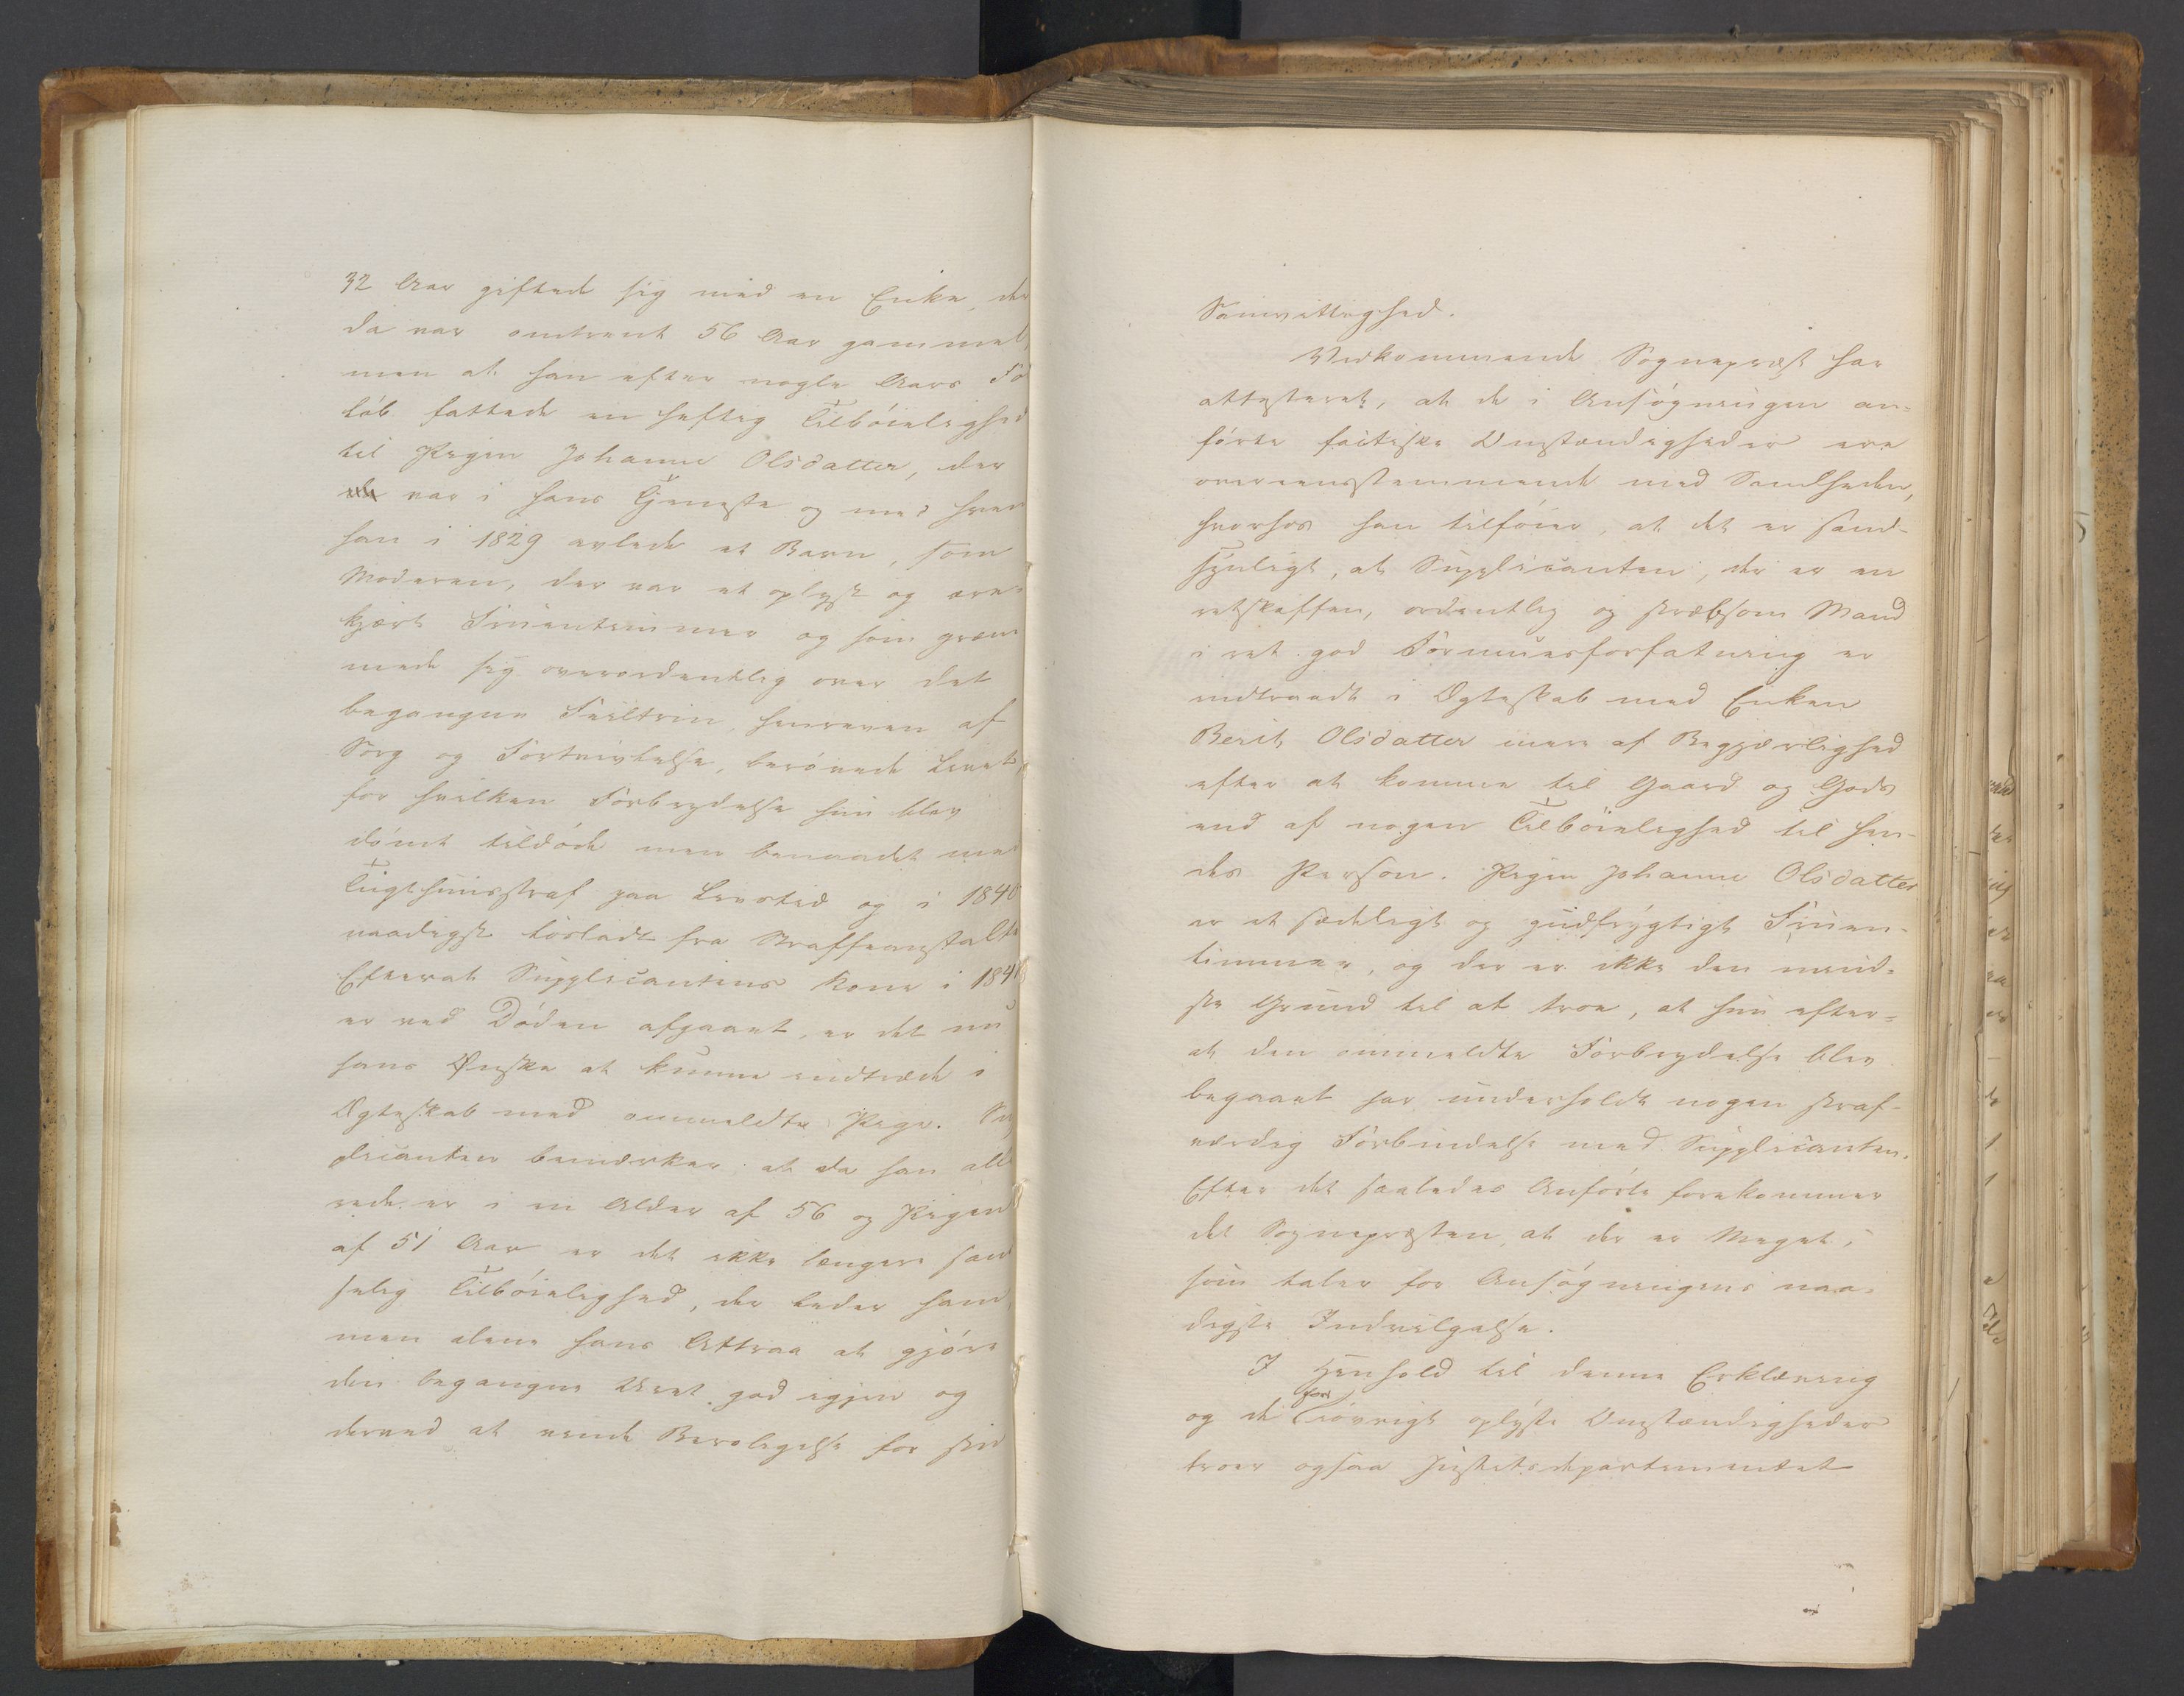 32 Aar giftede sig med en Enke, der
da var omtrent 56 Aar gammel,
men at han efter nogle Aars For
løb fattede en heftig Tilbøielighed
til Pigen Johanne Olsdatter, der
var i hans Tjeneste og med hvem
han i 1829 avlede et Barn, som
Moderen, der var et oplyst og ære-
kjært Fruentimmer og som græm
mede sig overordentlig over det
begangne Feiltrin, henreven af
Sorg og Fortvivlelse, berøvede Livet,
for hvilken Forbrydelse hun blev
dømt tildøde men benaadet med
Tugthuusstraf paa Livstid og i 1840
naadigst løsladt fra Straffeanstalten
Efterat Supplicantens Kone i 184
er ved Døden afgaaet, er det nu
hans Ønske at kunne indtræde i
Ægteskab med ommeldte Pige. Sup
plicanten bemærker at da han alle
rede er i en Alder af 56 og Pigen
af 51 Aar er det ikke længere sand
selig Tilbøielighed, der leder ham,
men alene hans Attraa at gjøre
den begangne Uret god igjen og
derved at vinde Beroligelse for sin
Samvittighed.
Vedkommende Sognepræst har
attesteret, at de i Ansøgningen an-
førte factiske Omstændigheder ere
overeensstemmende med Sandheden,
hvorhos han tilføier, at det er sand-
synligt, at Supplicanten, der er en
retskaffen, ordentlig og stræbsom Mand
i ret god Formuesforfatning er
indtraadt i Ægteskab med Enken
Berit Olsdatter mere af Begjærlighed
efter at komme til Gaard og Gods
end af nogen Tilbøielighed til hen-
des Person. Pigen Johanne Olsdatter
er et sædeligt og gudfrygtigt Fruen-
timmer, og der er ikke den mind-
ste Grund til at troe, at hun efter-
at den ommeldte Forbrydelse blev
begaaet har underholdt nogen straf-
værdig Forbindelse med Supplicanten.
Efter det saaledes Anførte forekommer
det Sognepræsten, at der er Meget,
som taler for Ansøgningens naa-
digste Indvilgelse.
I Henhold til denne Erklæring
og de for iøvrigt oplyste Omstændigheder
troer ogsaa Justitsdepartementet